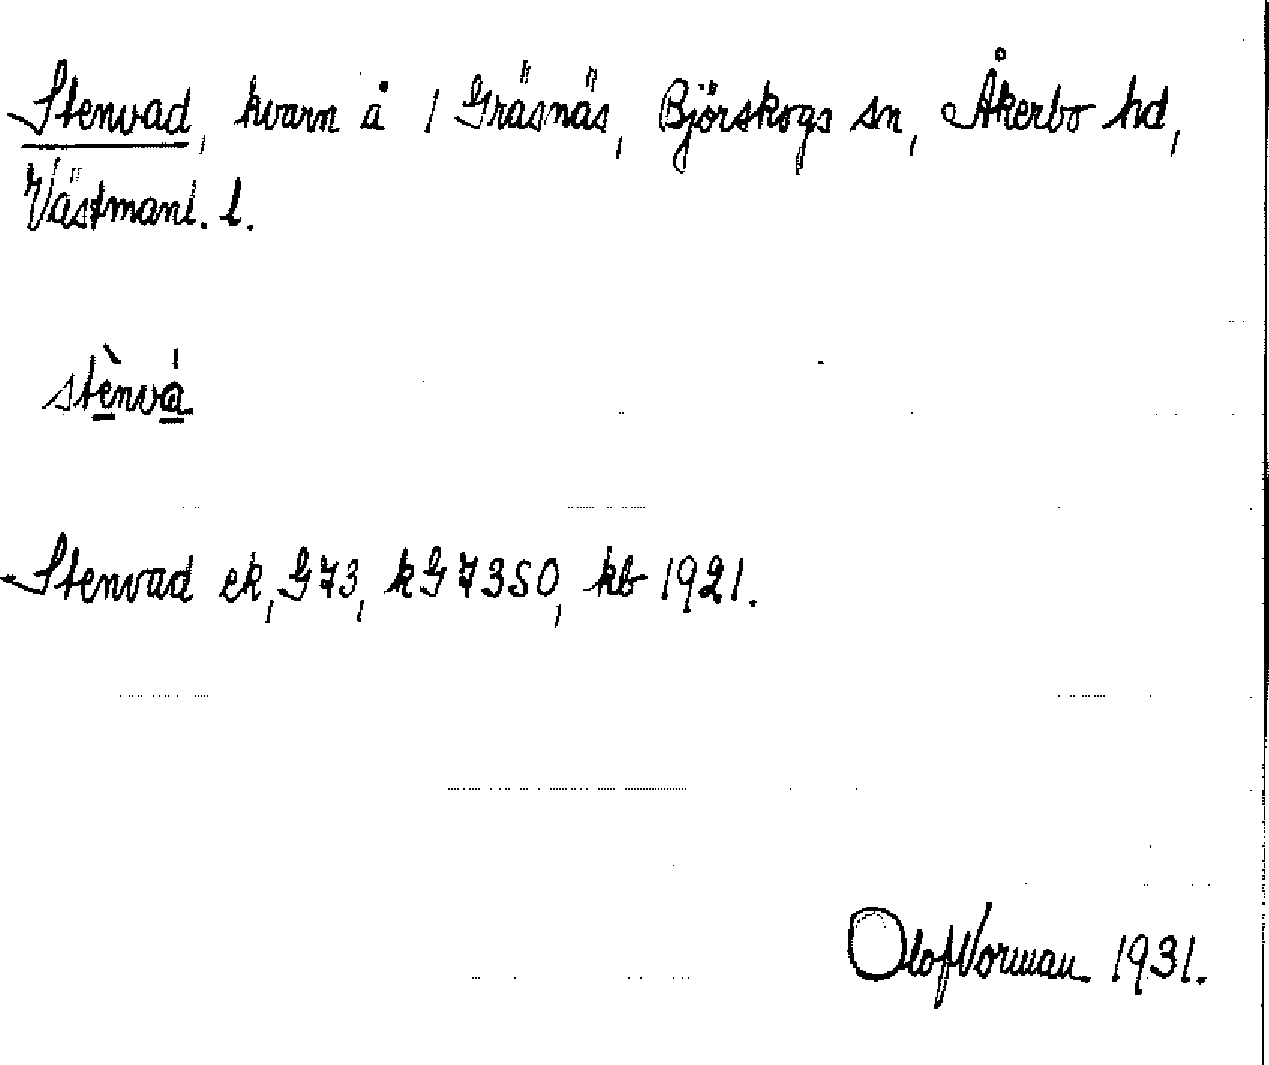 Stenvad, kvarn å 1 Gräsnäs, Björskogs sn, Åkerbo hd,
Västmanl. l.
stènvá
Stenvad ek, G73, kG73SO, kb 1921.
Olof Vorman 1931.